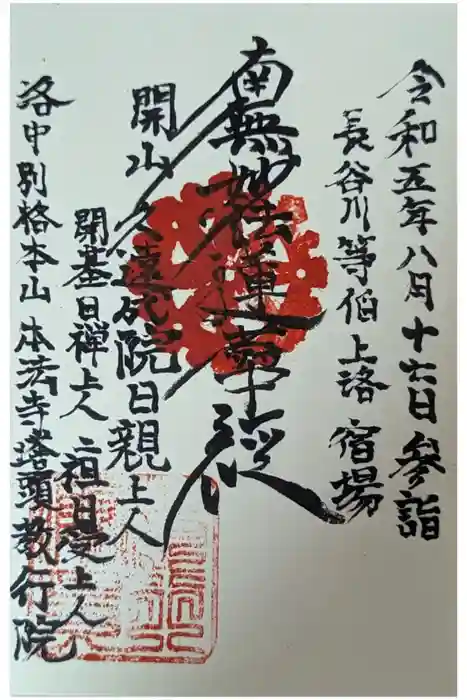 令和五年八月十六日参詣
長谷川等伯上洛宿場
南無妙法蓮華経
開山久遠成院日親上人
開基日禅上人 二祖日受上人
洛中別格本山本法寺塔頭教行院